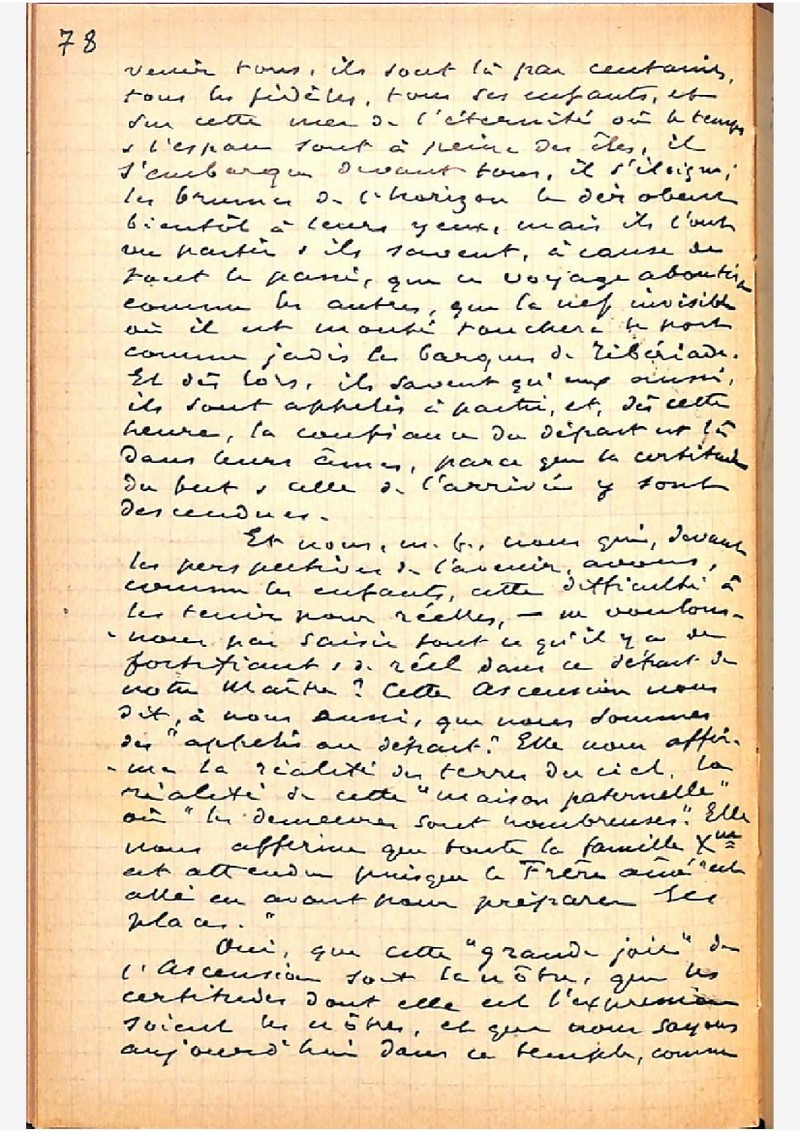 78
venir tous, ils sont là par centaines,
tous les fidèles, tous ses enfants, et
sur cette mer de l'éternité où le temps
& l'espace sont à peine des îles, il
s'embarque devant tous, il s'éloigne;
les brumes de l'horizon le dérobent
bientôt à leurs yeux, mais ils l'ont
vu partir & ils savent, à cause de
tout le passé, que ce voyage aboutira
comme les autres, que la nef invisible
où il est monté touchera le port
comme jadis les barques de Tibériade.
Et dès lors, ils savent qu'eux aussi,
ils sont appelés à partir, et, dès cette
heure, la confiance du départ est là
dans leurs âmes, parce que la certitude
du but & celle de l'arrivée y sont
descendues.
Et nous, m. f., nous qui, devant
les perspectives de l'avenir, avons,
comme les enfants, cette difficulté à
les tenir pour réelles, — ne voulons-
-nous pas saisir tout ce qu'il y a de
fortifiant & de réel dans ce départ de
notre Maître ? Cette Ascension nous
dit, à nous aussi, que nous sommes
des "appelés au départ". Elle nous affir-
-me la réalité des terres du ciel, la
réalité de cette "maison paternelle"
où "les demeures sont nombreuses". Elle
nous affirme que toute la famille Xne
est attendue puisque le Frère aîné "est
allé en avant pour préparer les
places."
Oui, que cette "grande joie" de
l'Ascension soit la nôtre, que les
certitudes dont elle est l'expression
soient les nôtres, et que nous soyons
aujourd'hui dans ce temple, comme